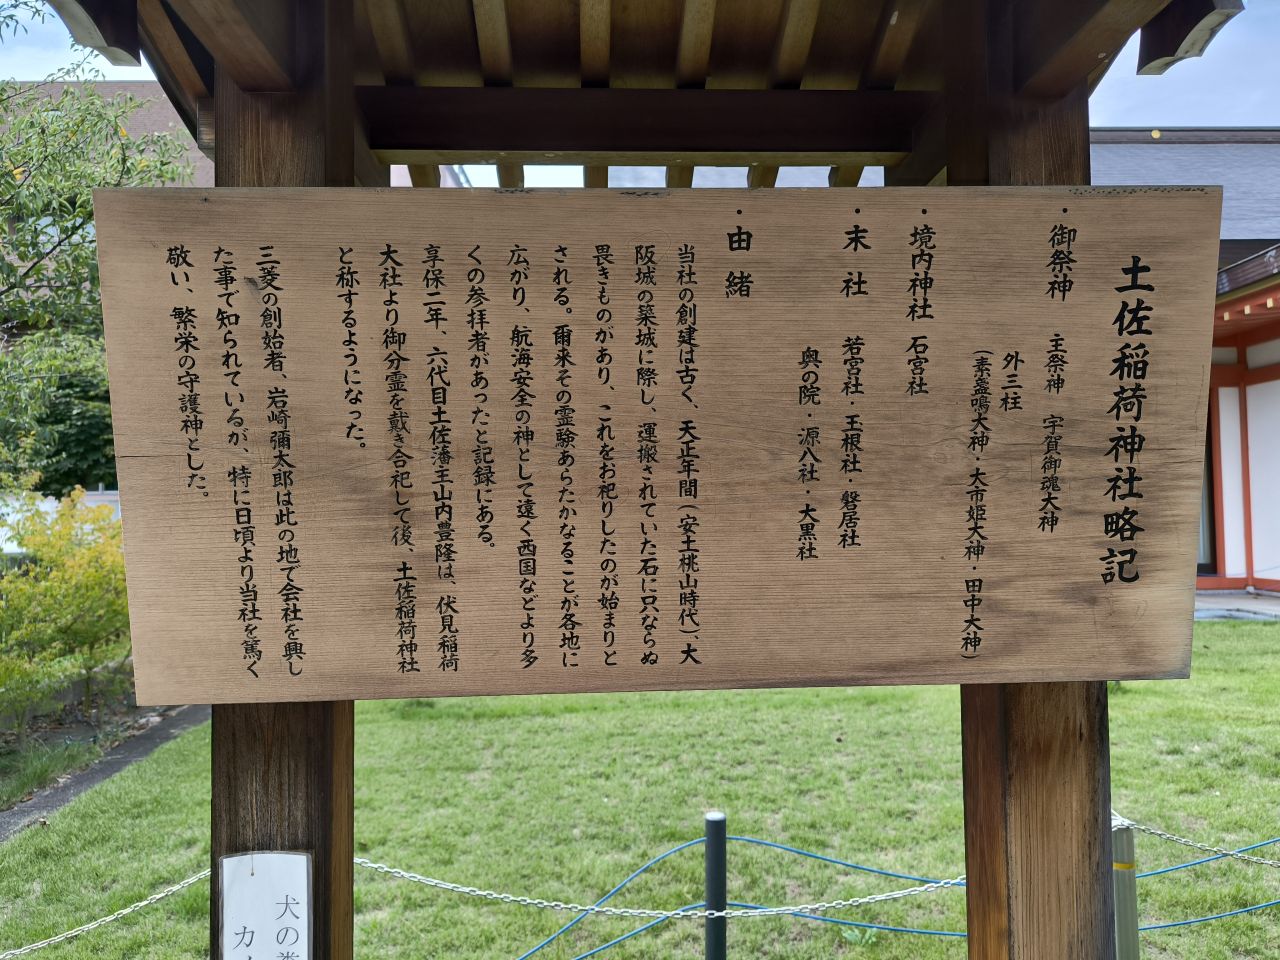 土佐稲荷神社略記
・御祭神 主祭神 宇賀御魂大神
外三柱
(素盞鳴大神・大市姫大神・田中大神)
・境内神社 石宮社
・末社 若宮社・玉根社・磐居社
奥の院・源八社・大黒社
・由緒
当社の創建は古く、天正年間(安土桃山時代)、大
阪城の築城に際し、運搬されていた石に只ならぬ
畏きものがあり、これをお祀りしたのが始まりと
される。爾来その霊験あらたかなることが各地に
広がり、航海安全の神として遠く西国などより多
くの参拝者があったと記録にある。
享保二年、六代目土佐藩主山内豊隆は、伏見稲荷
大社より御分霊を戴き合祀して後、土佐稲荷神社
と称するようになった。
三菱の創始者、岩崎彌太郎は此の地で会社を興し
た事で知られているが、特に日頃より当社を篤く
敬い、繁栄の守護神とした。
犬の
カ